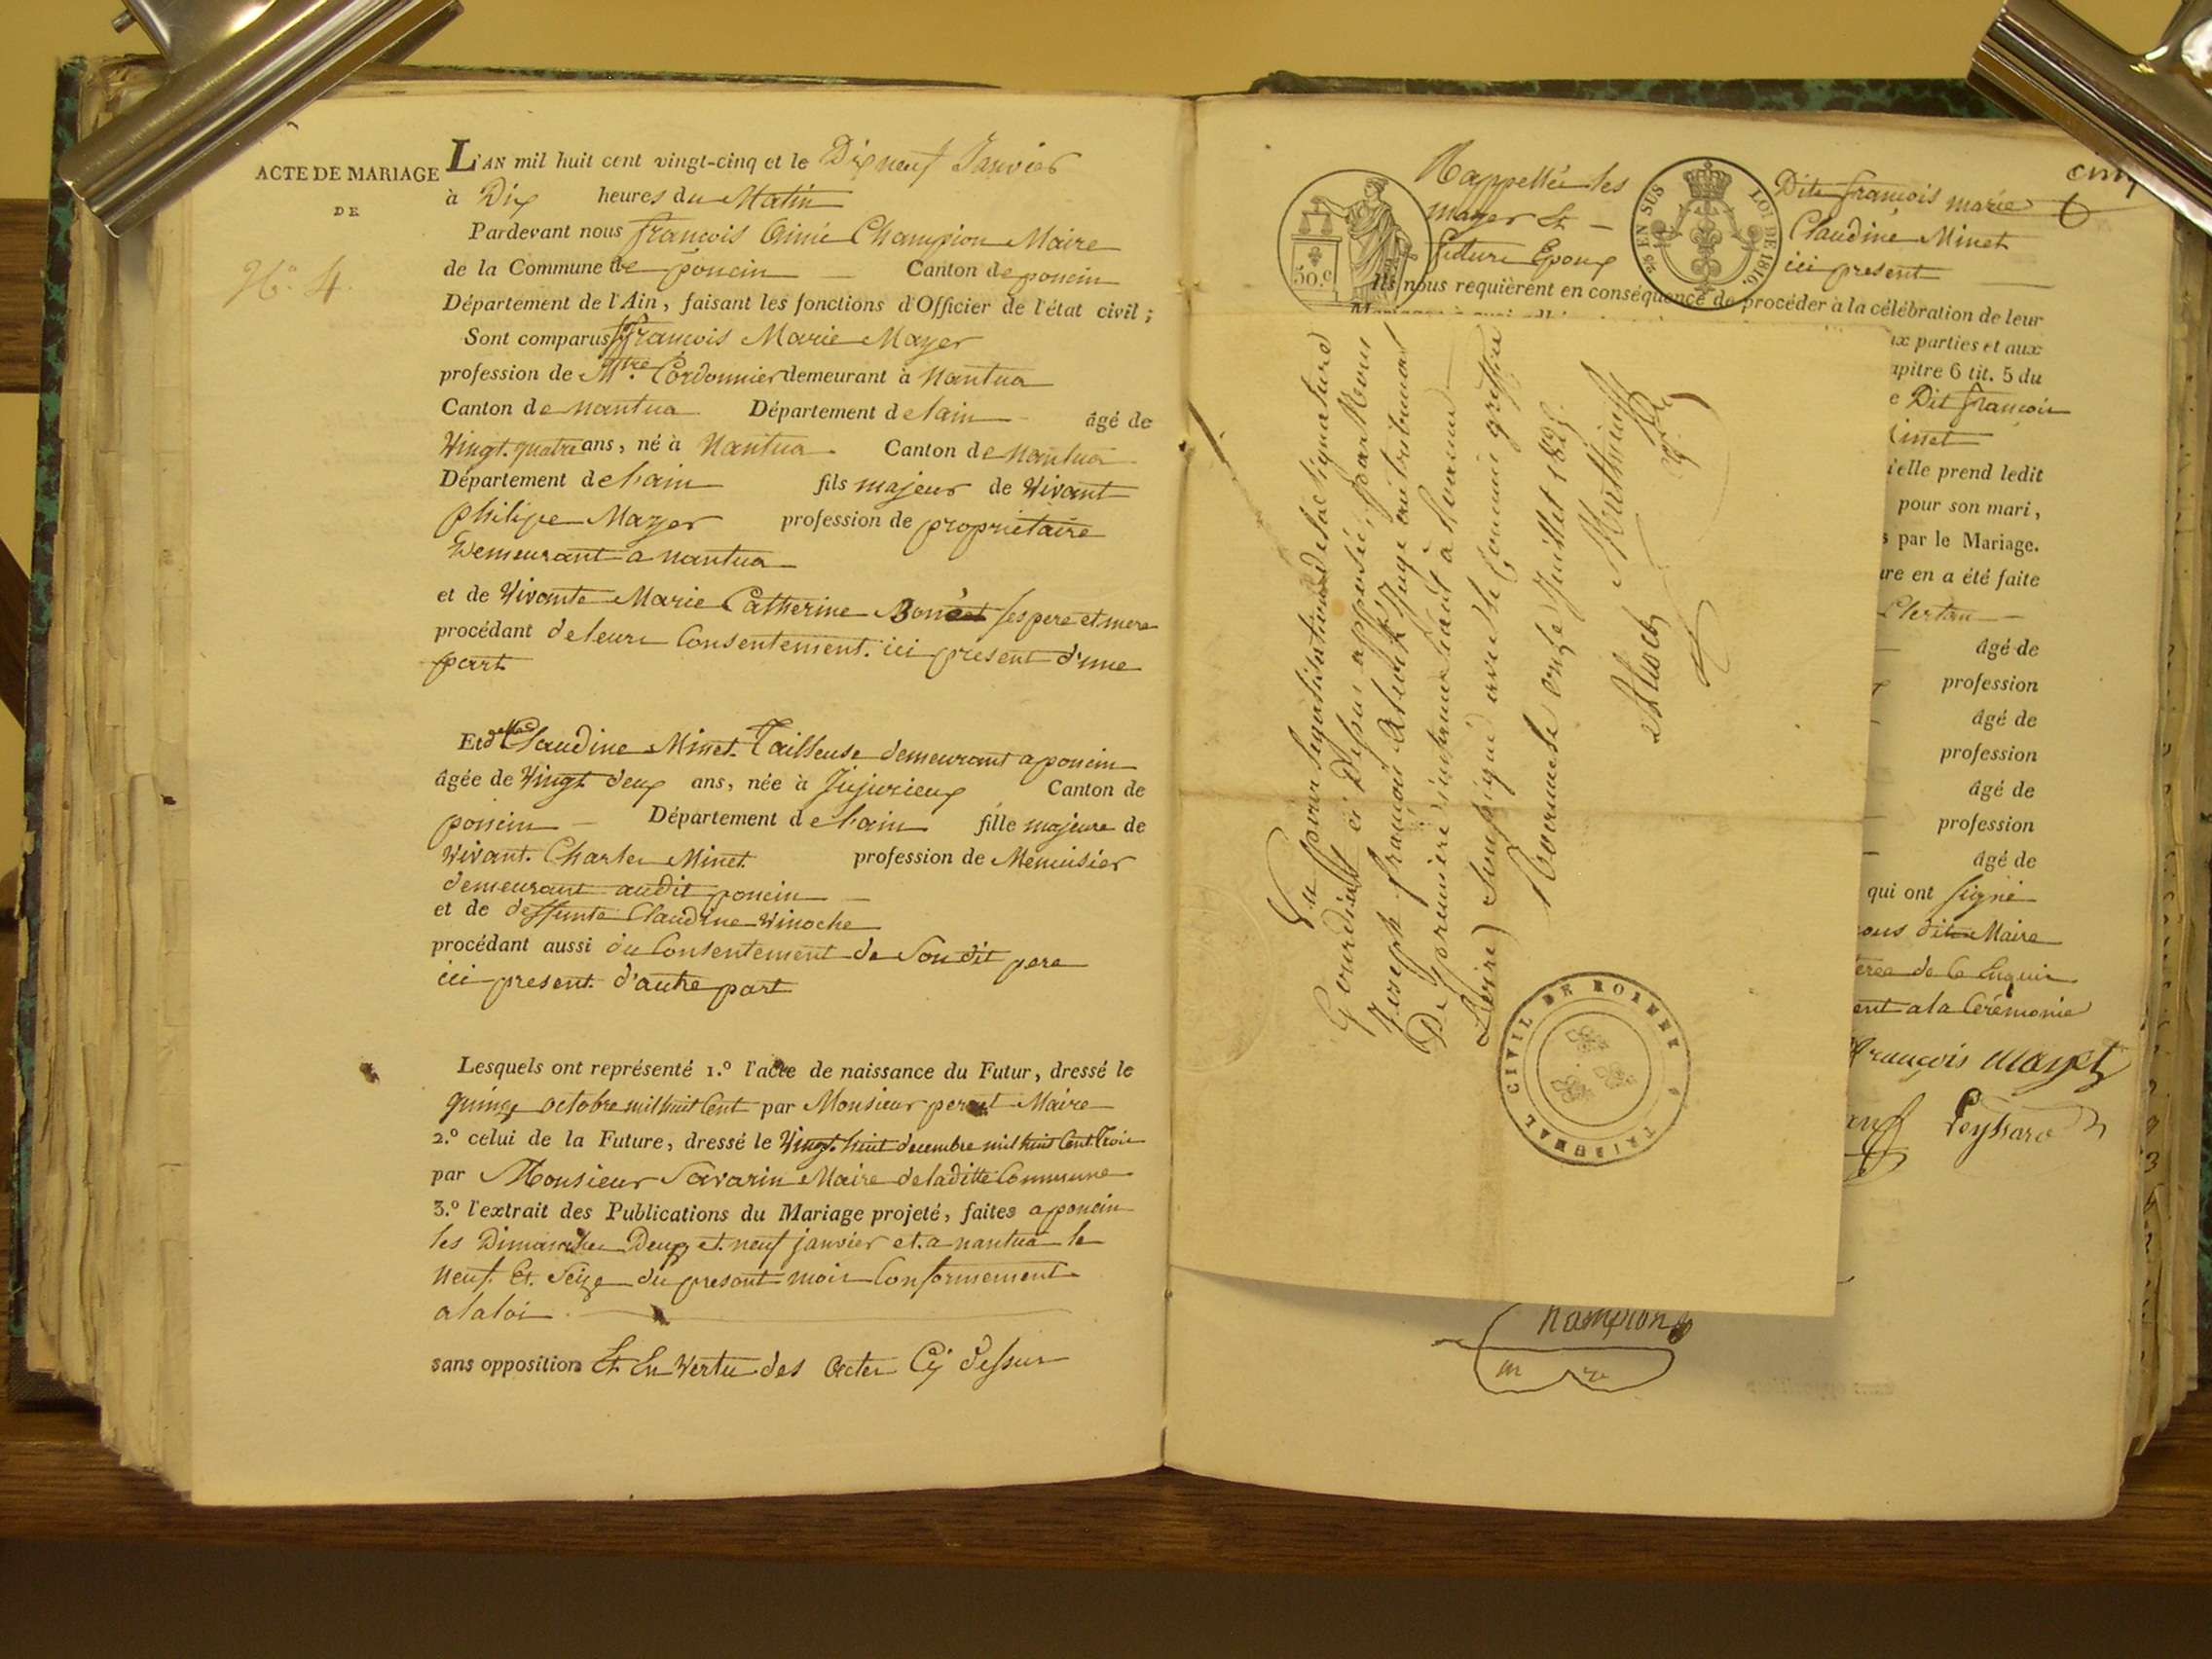 ACTE DE MARIAGE
DE
N.° 4.
L'AN mil huit cent vingt-cinq et le Dix neuf Janvier
à Dix heures du Matin
Pardevant nous françois Aimé Champion Maire
de la Commune de poncin Canton de poncin
Département de l'Ain, faisant les fonctions d'Officier de l'état civil;
Sont comparus françois Marie Mayer
profession de M.tre Cordonnier demeurant à Nantua
Canton de nantua Département de lain âgé de
Vingt. quatre ans, né à Nantua Canton de nantua
Département de lain fils majeur de Vivant
philipe Mayer profession de propriétaire
Demeurant a nantua
et de Vivante Marie Catherine ses pere et mere
procédant de leurs Consentement. ici present d'une
part
Et delle Claudine Minet. Tailleuse demeurant a poncin
âgée de Vingt deux ans, née à Jujurieux Canton de
poncin Département de lain fille majeure de
Vivant. Charles Minet profession de Menuisier
demeurant audit poncin
et de deffunte Claudine Vinoche
procédant aussi du Consentement de Son dit pere
ici present. d'autre part
Lesquels ont représenté 1.° l'acte de naissance du Futur, dressé le
quinze octobre mil huit Cent par Monsieur Maire
2.° celui de la Future, dressé le Vingt. huit decembre mil huit Cent Trois
par Monsieur Savarin Maire de laditte Commune
3.° l'extrait des Publications du Mariage projeté, faites a poncin
les Dimanches Deux et. neuf janvier et. a nantua le
neuf. Et. Seize du present mois Conformement
a la loi
sans opposition Et En Vertu des Actes Cy dessus
cinq
6
Rappellés les Dits françois marie
mayer Et Claudine Minet
future Epoux ici present
50.c
25 EN SUS LOI DE 1816.
Ils nous requièrent en conséquence de procéder à la célébration de leur
ux parties et aux
apitre 6 tit. 5 du
e Dit françois
inet
u'elle prend ledit
pour son mari,
s par le Mariage.
ure en a été faite
âgé de
profession
âgé de
profession
âgé de
profession
âgé de
qui ont signé
ous dit Maire
de ce Enquis
ent a la Cérémonie
françois mayet
Champion
Vu pour légalisation de la signature
ci Dessus apposée, par Nous
Joseph françois Juge au tribunal
De premiere instance séant à Roanne
(Loire) Soussigné avec le Commis greffier
Roanne le onze Juillet 182
TRIBUNAL CIVIL DE ROANNE